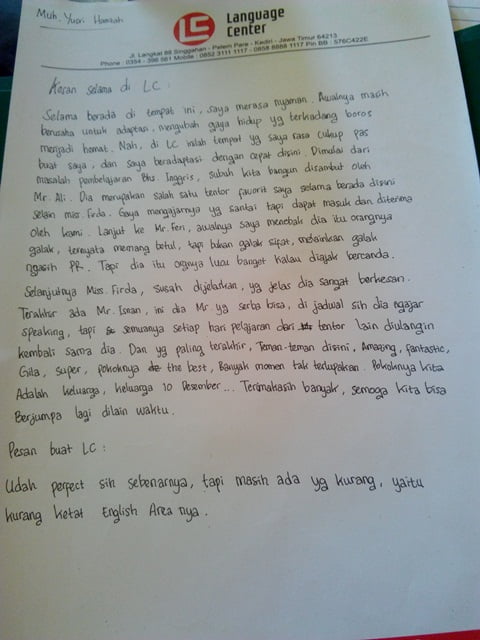 Muh. Yusri Hamzah
LC
Language
Center
Jl. Langkat 88 Singgahan - Pelem Pare - Kediri - Jawa Timur 64213
Phone : 0354 - 396 561 Mobile : 0852 3111 1117 - 0858 6888 1117 Pin BB : 576C422E
Kesan selama di LC :
Selama berada di tempat ini, saya merasa nyaman. Awalnya masih
berusaha untuk adaptasi, mengubah gaya hidup yg terkadang boros
menjadi hemat. Nah, di LC inilah tempat yg saya rasa cukup pas
buat saya, dan saya beradaptasi dengan cepat disini. Dimulai dari
masalah pembelajaran Bhs. Inggris, subuh kita bangun disambut oleh
Mr. Ali. Dia merupakan salah satu tentor favorit saya selama berada disini
selain miss. Firda. Gaya mengajarnya yg santai tapi dapat masuk dan diterima
oleh kami. Lanjut ke Mr. Feri, awalnya saya menebak dia itu orangnya
galak, ternyata memang betul, tapi bukan galak sifat, melainkan galak
ngasih PR. Tapi dia itu orgnya lucu banget kalau diajak bercanda.
Selanjutnya Miss. Firda, susah dijelaskan, yg jelas dia sangat berkesan.
Terakhir ada Mr. Isnan, ini dia Mr. yg serba bisa, di jadwal sih dia ngajar
speaking, tapi semuanya setiap hari pelajaran dari tentor lain diulangin
kembali sama dia. Dan yg paling terakhir, Teman-teman disini, Amazing, fantastic,
Gila, super, pokoknya the best, Banyak momen tak terlupakan. Pokoknya kita
Adalah keluarga, keluarga 10 Desember... Terimakasih banyak, semoga kita bisa
Berjumpa lagi dilain waktu.
Pesan buat LC :
Udah perfect sih sebenarnya, tapi masih ada yg kurang, yaitu
kurang ketat English Area nya.